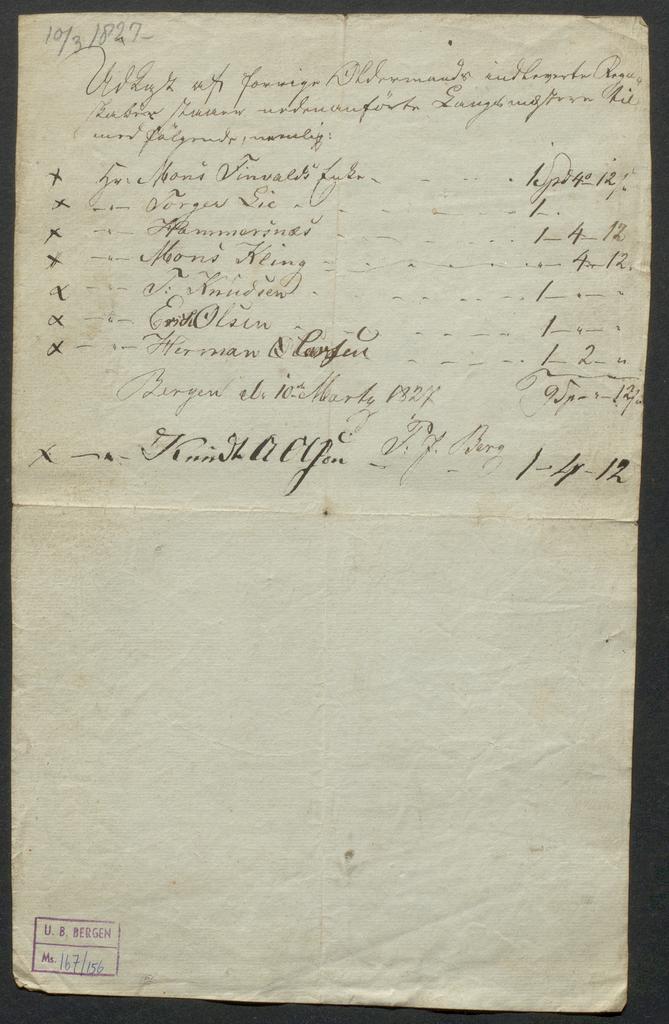 10/3 1827-
Udtog af forrige Oldermands indleverte Regn-
skaber staaer nedenanførte Laugsmestere til
med følgende, nemlig:
x Hr: Mons Tinvalds Enke - 1 Spd 4 o 12 s.
x - " - Torger Lie - 1 -
x - " - Hammersnæs 1 - 4 - 12
x - " - Mons Kling " - 4 - 12.
x - " - T: Knudsen 1 - " - "
x - " - Erich Olsen 1 - " - "
x - " - Herman Olavsen 1 - 2 - "
Bergen d. 10de Marty 1827 9 Sp - " - 12 s
T. J. Berg
x - " - Knudt Olsen 1 - 4 - 12
U. B. BERGEN
Ms. 167/156